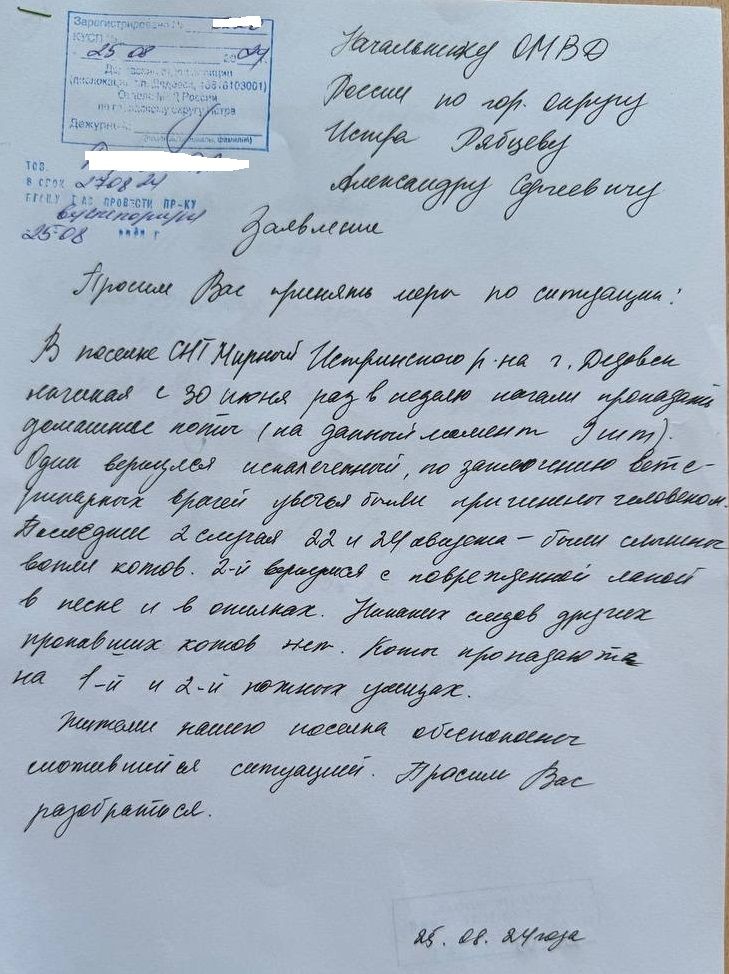 Зарегистрировано №
КУСП №
25 08 2024 г.
(дислокация г. Дедовск, 13816103001)
Отдела МВД России
по городскому округу Истра
Дежурный
ТОВ.
В СРОК 27 08 24
ПРОВЕСТИ ПР-КУ
25-08
Начальнику ОМВД
России по гор. округу
Истра Рябцеву
Александру Сергеевичу
Заявление
Просим Вас принять меры по ситуации:
В поселке СНТ Мирный Истринского р-на г. Дедовск
начиная с 30 июня раз в неделю начали пропадать
домашние коты (на данный момент 9 шт).
Один вернулся искалеченный, по заключению вете-
ринарных врачей увечья были причинены человеком.
Последние 2 случая 22 и 24 августа – были слышны
вопли котов. 2-й вернулся с поврежденной лапой
в песке и в опилках. Никаких следов других
пропавших котов нет. Коты пропадают
на 1-й и 2-й южных улицах.
Жители нашего поселка обеспокоены
сложившейся ситуацией. Просим Вас
разобраться.
25. 08. 24 года